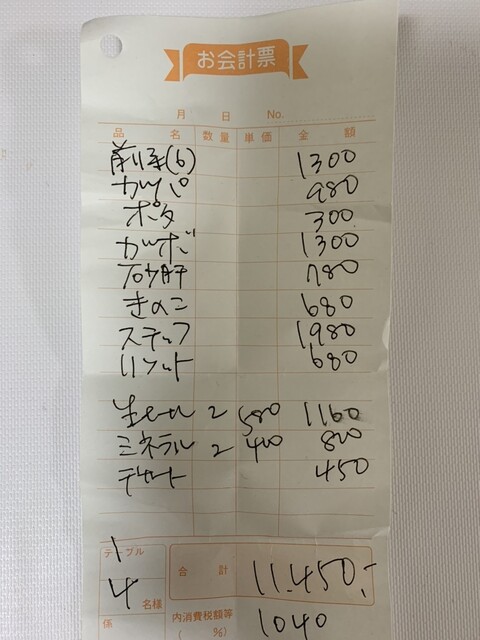 お会計票
月 日 No.
品 名 数量 単価 金 額
前菜(6) 1300
カルパ 980
ポタ 300
カルボ 1300
砂肝 780
きのこ 680
ステーフ 1980
リゾット 680
生ビール 2 580 1160
ミネラル 2 400 800
デザート 450
テーブル 1
4 名様
合 計 11.450.-
係
内消費税額等 1040
( %)